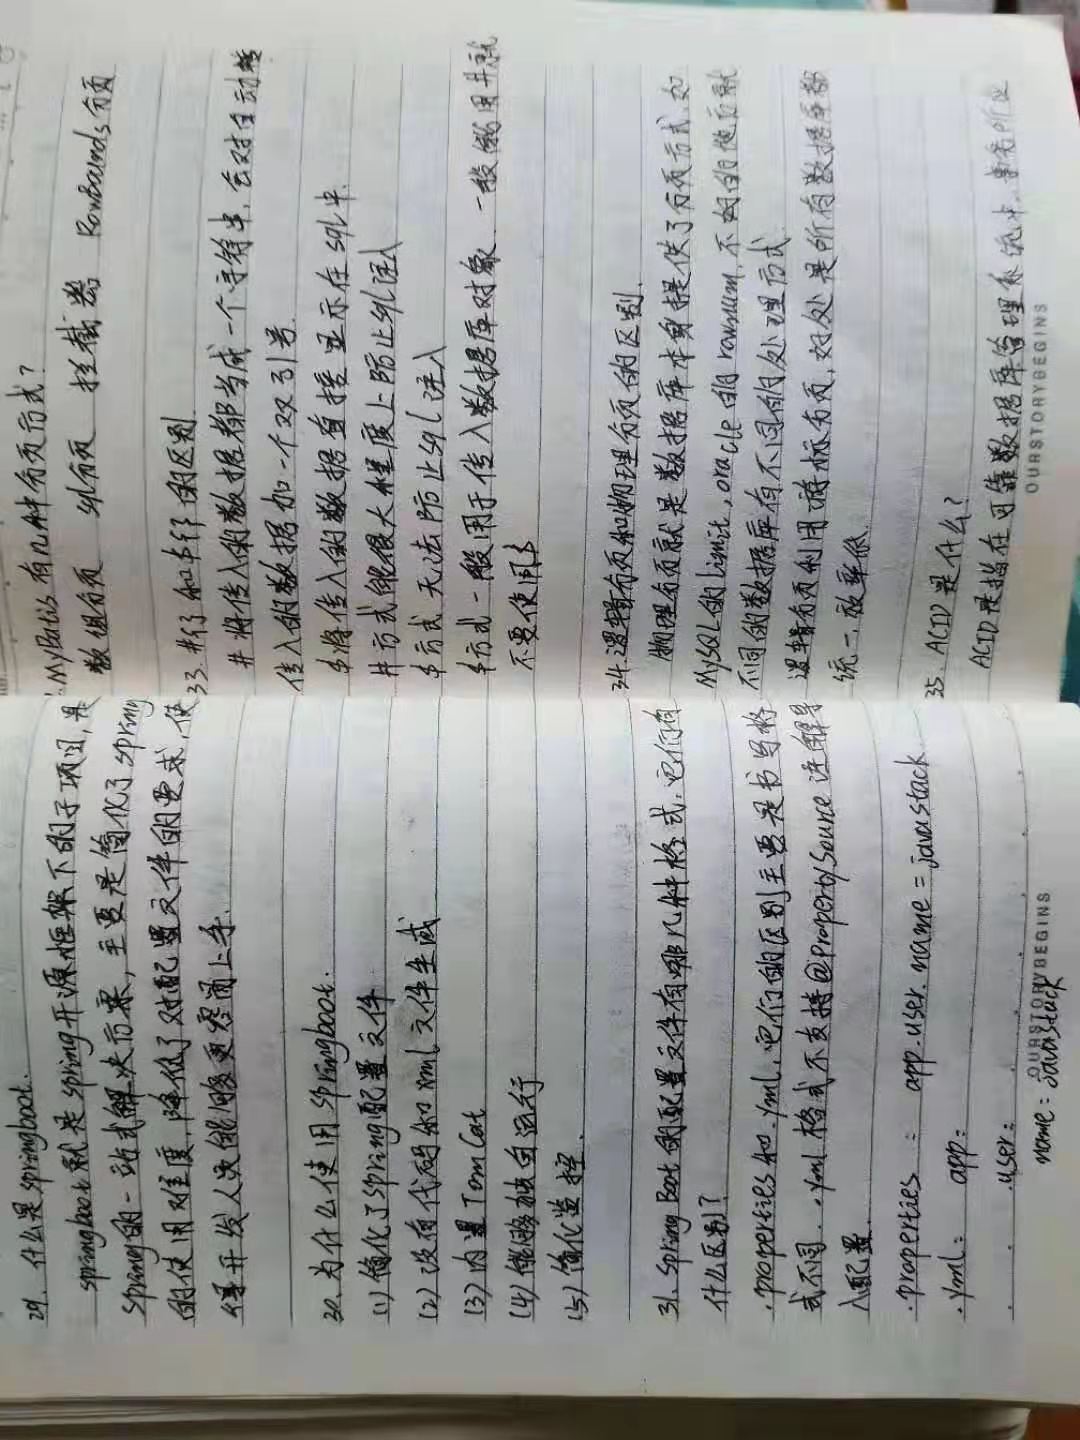 29. 什么是springboot.
springboot就是spring开源框架下的子项目,是
spring的一站式解决方案,主要是简化了spring
的使用难度,降低了对配置文件的要求,使
得开发人员能够更容易上手.
30.为什么使用springboot.
(1)简化了spring配置文件
(2)没有代码和xml文件生成
(3)内置TomCat
(4)能够独自运行
(5)简化监控.
31.Spring Boot的配置文件有哪几种格式.它们有
什么区别?
.properties和.yml.它们的区别主要是书写格
式不同..yml格式不支持@PropertySource注解导
入配置
.properties: app.user.name=javastack
.yml: app:
user:
name: javastack
OURSTORYBEGINS
.MyBatis有几种分页方式?
数组分页 sql分页 拦截器 RowBounds分页
33.#{}和${}的区别
#将传入的数据都当成一个字符串,会对自动
传入的数据加一个双引号.
$将传入的数据直接显示在sql中.
#方式能很大程度上防止sql注入
$方式无法防止sql注入
$方式一般用于传入数据库对象 一般能用#就
不要使用$
34.逻辑分页和物理分页的区别.
物理分页就是数据库本身提供了分页方式,如
MySQL的limit,oracle的rownum,不好的便
不同的数据库有不同的处理方式
逻辑分页利用游标分页,好处是所有数据库都
统一,效率低.
35.ACID是什么?
ACID是指在可靠数据库管理系统中,
OURSTORYBEGINS